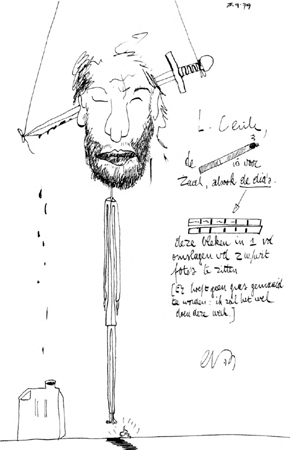 2.9.79
L. Cecile,
de in voor
Zaal, alsook de dia's.
deze bleken in 1 vd
omslagen vd zw/wit
foto's te zitten
[Er hoeft geen gras gemaaid
te worden: ik zal het wel
doen deze week]